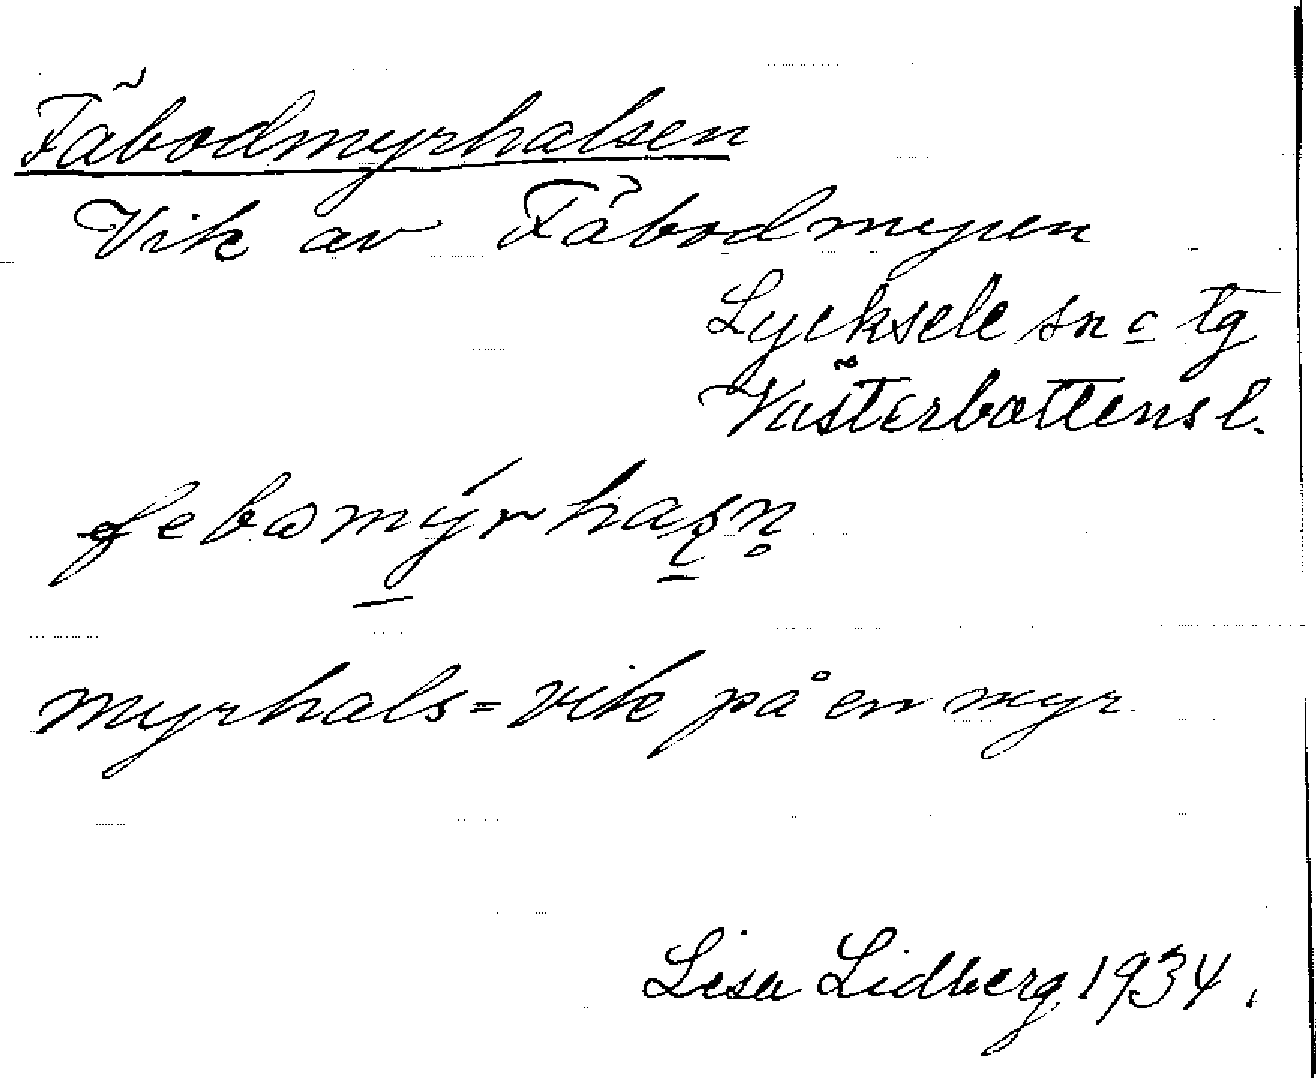 Fäbodmyrhalsen
Vik av Fäbodmyren
Lycksele sn o tg
Västerbottens l.
myrhals = vik på en myr
Lisa Lidberg 1934.